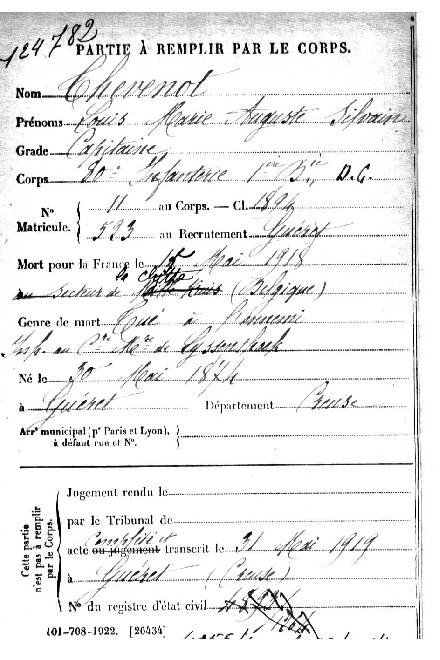 124782
PARTIE À REMPLIR PAR LE CORPS.
Nom Chevenot
Prénoms Louis Marie Auguste Silvain
Grade Capitaine
Corps 30e Infanterie 1ère Bie D.C.
N° Matricule. { 11 au Corps. — Cl. 1894
593 au Recrutement Guéret
Mort pour la France le 15 Mai 1918
au Secteur de la (Belgique)
Genre de mort Tué à l'ennemi
Né le 30 Mai 1874
à Guéret Département Creuse
Arrt municipal (pr Paris et Lyon), à défaut rue et N°.
Cette partie n'est pas à remplir par le Corps.
Jugement rendu le
par le Tribunal de
acte ou jugement transcrit le 31 Mai 1919
à Guéret (Creuse)
N° du registre d'état civil
101-708-1922. [26434]